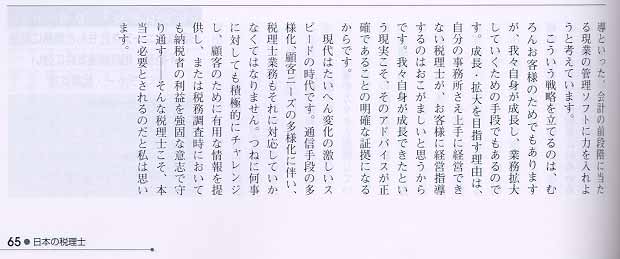 導といった、会計の前段階に当た
る現業の管理ソフトに力を入れよ
うと考えています。
こういう戦略を立てるのは、む
ろんお客様のためでもあります
が、我々自身が成長し、業務拡大
していくための手段でもあるので
す。成長・拡大を目指す理由は、
自分の事務所さえ上手に経営でき
ない税理士が、お客様に経営指導
するのはおこがましいと思うから
です。我々自身が成長できたとい
う現実こそ、そのアドバイスが正
確であることの明確な証拠になる
からです。
現代はたいへん変化の激しいス
ピードの時代です。通信手段の多
様化、顧客ニーズの多様化に伴い、
税理士業務もそれに対応していか
なくてはなりません。つねに何事
に対しても積極的にチャレンジ
し、顧客のために有用な情報を提
供し、または税務調査時において
も納税者の利益を強固な意志で守
り通す――そんな税理士こそ、本
当に必要とされるのだと私は思い
ます。
65●日本の税理士